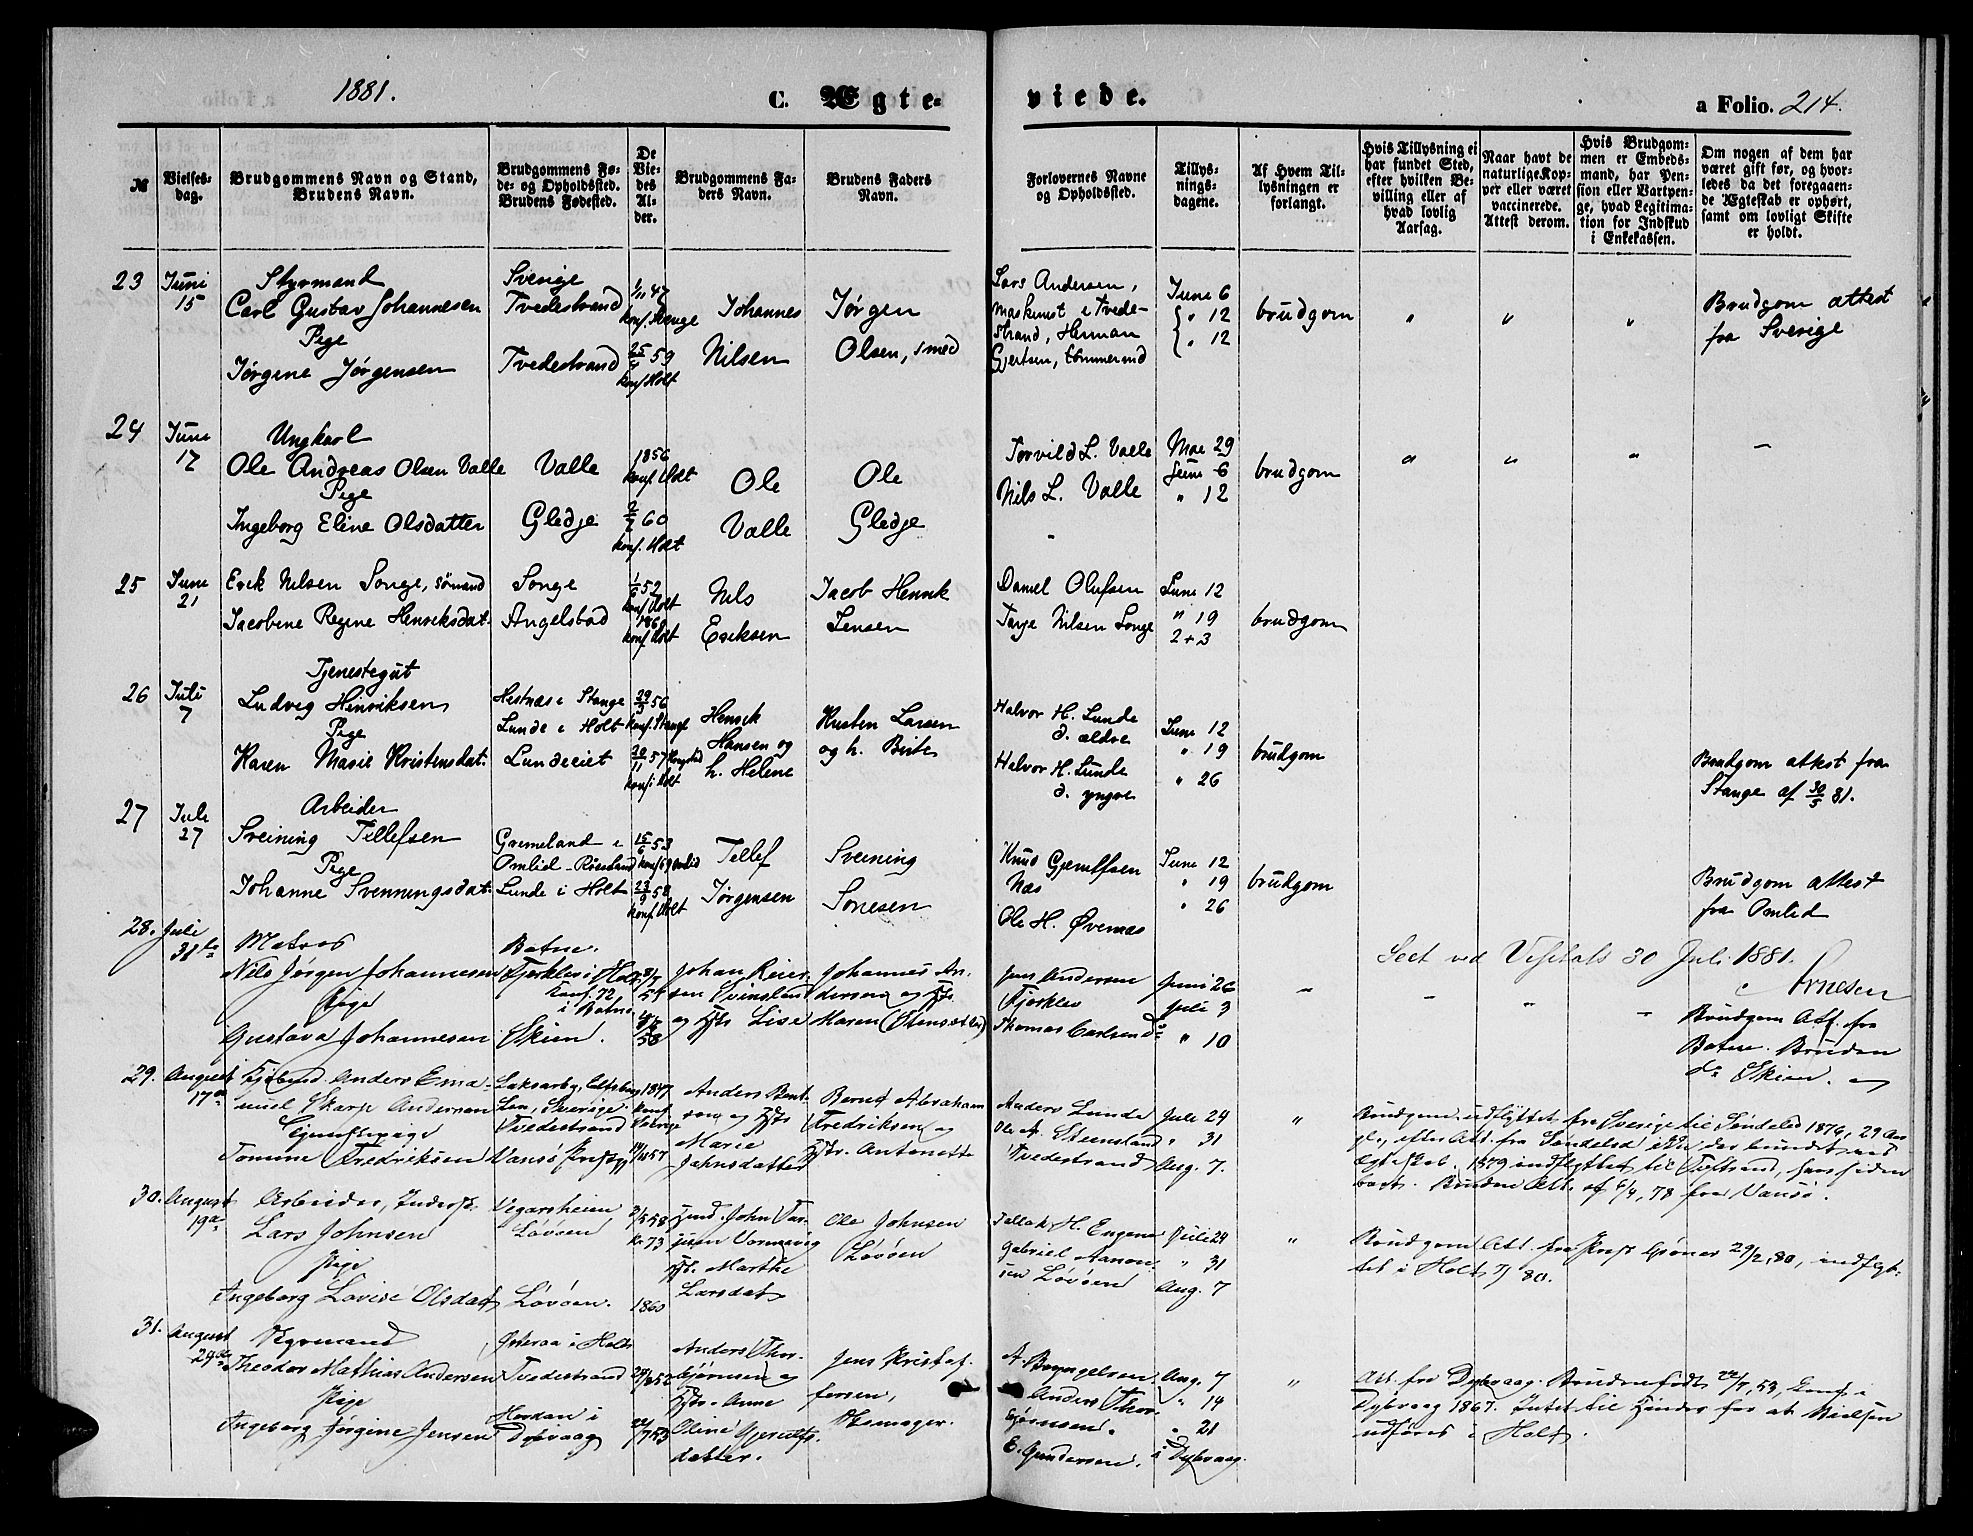 1881.
C. Ægte-
viede.
a Folio. 214.
№
Vielses-
dag.
Brudgommens Navn og Stand,
Brudens Navn.
Brudgommens Fø-
de- og Opholdssted.
Brudens Fødested.
De
Vie-
des
Al-
der.
Brudgommens Fa-
ders Navn.
Brudens Faders
Navn.
Forlovernes Navne
og Opholdssted.
Tillys-
nings-
dagene.
Af Hvem Til-
lysningen er
forlangt.
Hvis Tillysning ei
har fundet Sted,
efter hvilken Be-
villing eller af
hvad lovlig
Aarsag.
Naar havt de
naturlige Kop-
per eller været
vaccinerede.
Attest derom.
Hvis Brudgom-
men er Embeds-
mand, har Pen-
sion eller Vartpen-
ge, hvad Legitima-
tion for Indskud
i Enkekassen.
Om nogen af dem har
været gift før, og hvor-
ledes da det foregaaen-
de Ægteskab er ophørt,
samt om lovligt Skifte
er holdt.
23
Juni
15
Styrmand
Carl Gustav Johannesen
Pige
Jørgine Jørgensen
Sverige
Tvedestrand
Tvedestrand
1/11 47
konf. Sverige
25/4 59
konf. Holt
Johannes
Nilsen
Jørgen
Olsen, smed
Lars Andersen,
maskinist i Tvede-
strand, Herman
Gjertsen, tømmermd
June 6
" 12
" 12
brudgom
" " "
Brudgom attest
fra Sverige
24
June
17
Ungkarl
Ole Andreas Olsen Valle
Pige
Ingeborg Eline Olsdatter
Valle
Gledje
1856
konf. Holt
2/7 60
konf. Holt
Ole
Valle
Ole
Gledje
Torvild L. Valle
Nils L. Valle
Mae 29
June 6
" 12
brudgom
" " " —
25
June
21
Erik Nilsen Songe, sømand
Jacobine Regine Henriksdat.
Songe
Angelstad
1/6 52
konf. Holt
1860
konf. Holt
Nils
Eriksen
Jacob Henrik
Jensen
Daniel Olufsen
Tarje Nilsen Songe
June 12
" 19
2 + 3
brudgom
26
Juli
7
Tjenestegut
Ludvig Hinriksen
Pige
Karen Marie Kristensdat.
Hestnæs i Stange
Lunde i Holt
Lundeeiet
29/3 56
konf. Stange
20/11 57
konf. i Holt
Henrik
Hansen og
h. Helene
Kristen Larsen
og h. Birte
Halvor H. Lunde
d. ældre
Halvor H. Lunde
d. yngre
June 12
" 19
" 26
brudgom
Brudgom attest fra
Stange af 30/5 81.
27
Juli
27
Arbeider
Sveining Tellefsen
Pige
Johanne Svenningsdat.
Gremeland i
Omlid - Røiseland
Lunde i Holt
15/6 53
konf 69 Omlid
23/9 58
konf. Holt
Tellef
Jørgensen
Sveining
Sonesen
Knud Gjerulfsen
Næs
Ole H. Øvernæs
June 12
" 19
" 26
brudgom
Brudgom attest
fra Omlid
28.
Juli
31te
Matros
Nils Jørgen Johannesen
Pige
Gustava Johannesen
Botne.
Fjerkleiv i Holt
Konf. 72
i Botne
Skien.
Johan Reier-
sen Svinsland
og Hstr. Lise
Johannes An-
dersen og Hstr.
Maren
Jens Andersen
Fjerklev
Thomas Carlsen do
Juni 26
Juli 3
" 10
Seet ved Visitats 30 Juli 1881.
Arnesen
Brudgom Att. fra
Botne. Bruden
do Skien.
29.
August
17de
Anders Ema-
nuel Skarp Andersen
Tjenestepige
Tomine Fredriksen
Sverige.
Tvedestrand
Vansø
1847
konf.
Sverige
Anders Bent-
son og Hstr.
Marie
Jahnsdatter
Bernt Abraham
Fredriksen og
Hstr. Antonette
Anders Lunde
Ole A. Steensland
Tvedestrand
Juli 24
" 31
Aug. 7.
"
Brudgom. udflyttet fra Sverige til Søndeled 1876, 29 Au
efter Att. fra Søndeled ikke der bundet ved
Egteskab. 1879 indflyttet til Tvstrand, hvor siden
været. Brudens Att. af 6/4, 78 fra Vansø.
30.
August
19de
Arbeider, Inderst.
Lars Johnsen
Pige
Ingeborg Lovise Olsdat
Vegarsheien
Løvøen
Løvøen.
3/5 58
K. 73
1860
John Tar-
jusen Vormevig
Hstr. Marthe
Larsdat
Ole Johnsen
Løvøen
Tallak H. Engene
Gabriel Aanon-
sen Løvøen
Juli 24
" 31
Aug. 7
"
Brudgom Att. fra Præst Grøner 29/2, 80, indflyt-
tet i Holt 80.
31.
August
29de
Styrmand
Theodor Mathias Andersen
Pige
Ingeborg Jørgine Jensen
Østeraa i Holt
Tvedestrand
Hordan i
Dybvaag
22/7 53
Anders Thor-
bjørnsen og
Hstr. Anne
Oline Gjerulfs-
datter.
Jens Kristof-
fersen,
Skomager.
A. Bøgngelsen.
Anders Thor-
bjørnsen.
E. Gundersen.
Aug. 7
" 14
" 21
i Dybvaag.
"
Att. fra Dybvaag. Bruden født 22/7, 53, Konf. i
Dybvaag 1867. Intet til Hinder for at Vielsen
udføres i Holt.